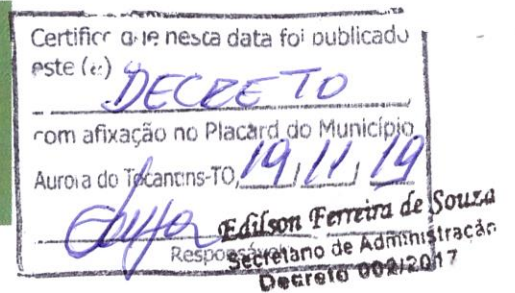 Certifico que nesta data foi publicado
este (e:)
DECRETO
com afixação no Placard do Município
Aurora do Tocantins-TO, 19/11/19
Edilson Ferreira de Souza
Responsável
Secretario de Administração
Decreto 002/2017